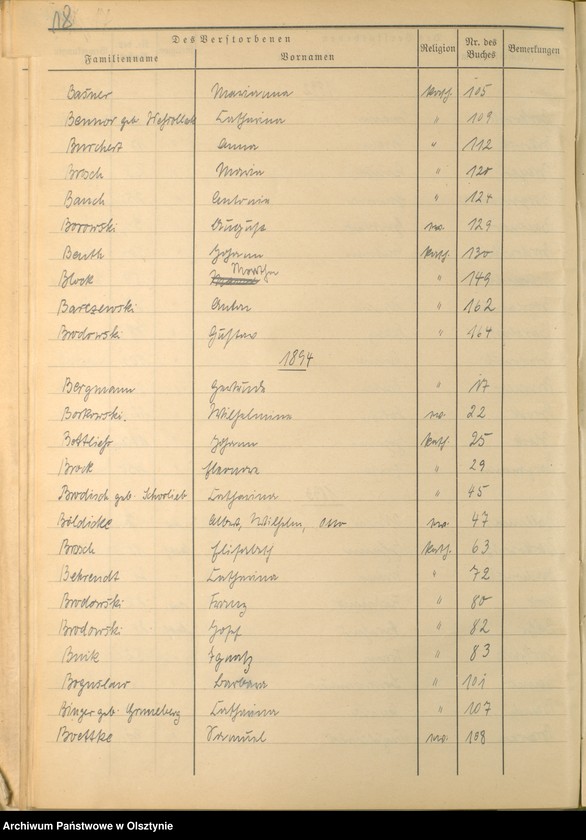 18
Des Verstorbenen
Familienname Vornamen Religion Nr. des Buches Bemerkungen
Basner Marianna kath. 105
geb. Catharina " 109
Burchert Anna " 112
Brosch Maria " 120
Bauch Antonie " 124
Borowski August ev. 129
Beuth Johann kath. 130
Block Martha " 149
Barczewski Anton " 162
Brodowski Gustav " 164
1894
Bergmann Gertrude " 17
Borkowski. Wilhelmine ev. 22
Johann kath. 25
Brock Eleonore " 29
geb. Catharina " 45
Böldicke Albert, Wilhelm, Otto ev. 47
Brosch Elisabeth kath. 63
Behrendt Catharina " 72
Brodowski Franz " 80
Brodowski Josef " 82
Ignatz " 83
Boguslaw Barbara " 101
geb. Catharina " 107
Boettke Samuel ev. 108
Archiwum Państwowe w Olsztynie